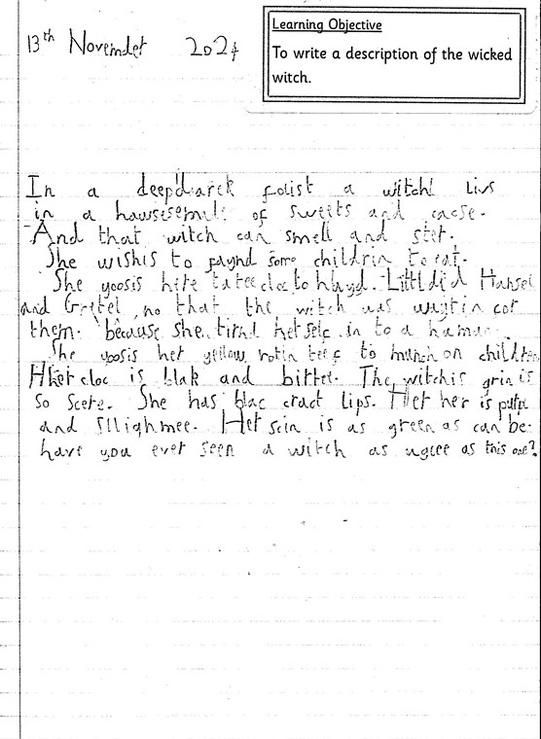 13th Novemdet 2024
Learning Objective
To write a description of the wicked
witch.
In a deep darck foist a witch livs
in a of sweets and
And that witch can smell and
She wishis to some childrin to eat.
She yoosis cloc to hayd. Littl did Hansel
and Gretel no that the witch was waytin for
them. because She tirnd herself in to a human.
She yoosis her yellow rotin teef to munch on children
Her cloc is blak and The witchis grin is
so She has blac cract lips. Her her is
and Her scin is as green as can be.
have you ever seen a witch as uglee as this one?